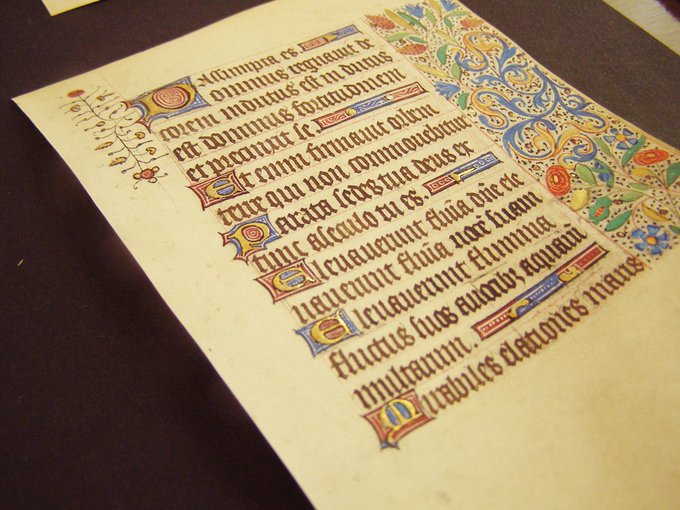 Assumpta es
Dominus regnauit de
corem indutus est indutus
est dominus fortitudinem
et precinxit se
Et enim firmauit orbem
terre qui non commouebitur
Parata sedes tua deus ex
tunc a seculo tu es
Eleuauerunt flumina dñe ele
uauerunt flumina uocem suam
Eleuauerunt flumina
fluctus suos a uocibus aquarū
multarum
Mirabiles elationes maris